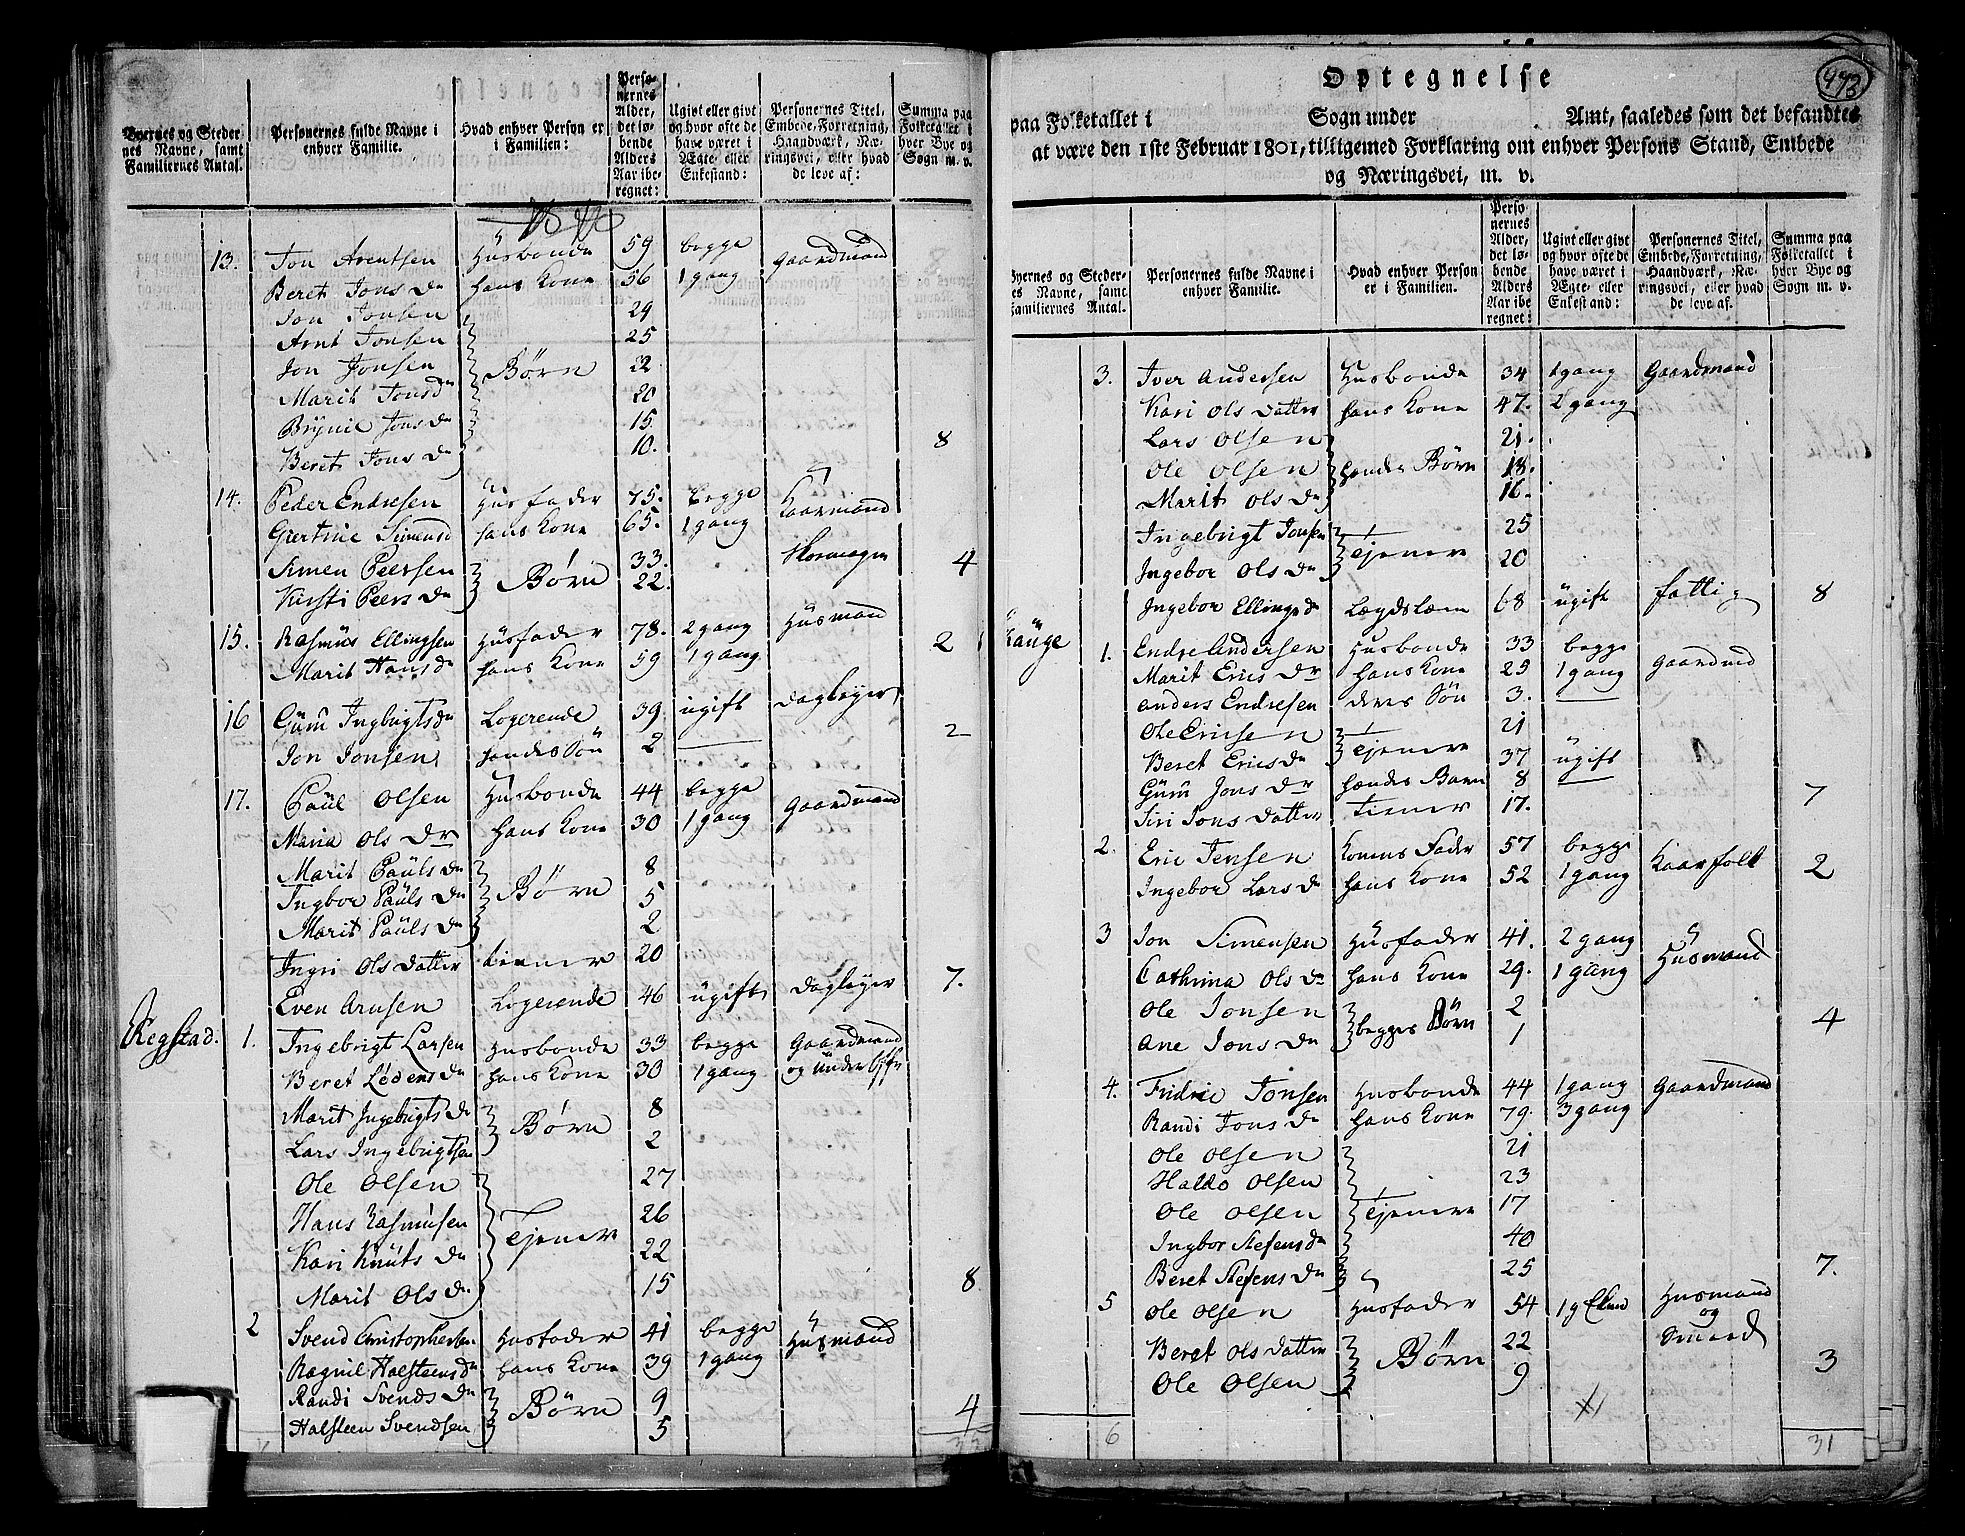 Byernes og Stedernes Navne, samt Familiernes Antal. | Personernes fulde Navne i enhver Familie. | Hvad enhver Person er i Familien: | Personernes Alder, det løbende Alders Aar iberegnet: | Ugivt eller givt og hvor ofte de have været i Ægte- eller Enkestand: | Personernes Titel, Embede, Forretning, Haandværk, Næringsvei, eller hvad de leve af: | Summa paa Folketallet i hver Bye og Sogn m. v.
13. Jon Arentsen Husbonde 59 begge Gaardmand
Beret Jons Dr hans Kone 56 1 gang
Jon Jonsen 29
Arnt Jonsen 25
Jon Jonsen Børn 22
Marit Jonsdr 20
Brynie Jons dr 15.
Beret Jons dr 10. 8
14. Peder Endresen Husfader 75. begge Kaarmand
Giertrue Simensd hans Kone 65. 1 gang
Simen Peersen Børn 33.
Kirsti Peers dr 22. 4
15. Rasmus Ellingsen Husfader 78. 2 gang Husmand
Marit Hansdr hans Kone 59 1 gang 2
16 Guru Ingbrigtsdr Logerende 39 ugift Dagleyer
Jon Jonsen hendes Søn 2 2
17. Paul Olsen Husbonde 44 begge Gaardmand
Maria Ols Dr hans Kone 30 1 gang
Marit Pauls dr 8
Ingbor Pauls dr Børn 5
Marit Pauls dr 2
Ingri Ols datter tiener 20
Even Arnsen Logerende 46 ugift Dagleyer 7.
Regstad. 1. Ingebrigt Larsen Husbonde 33 begge Gaardmand
Beret Lodens dr hans Kone 30 1 gang og under Offr
Marit Ingebrigts dr Børn 8
Lars Ingebrigtsen 2
Ole Olsen 27
Hans Rasmusen Tjenere 26
Kari Knuts dr 22
Marit Ols dr 15 8
2 Svend Christophersen Husfader 41 begge Husmand
Ragnil Halsteensdr hans Kone 39 1 gang
Randi Svends dr Børn 9
Halsteen Svendsen 5 4
Optegnelse
993
paa Folketallet i Sogn under Amt, saaledes som det befandtes
at være den 1ste Februar 1801, tilligemed Forklaring om enhver Persons Stand, Embede
og Næringsvei, m. v.
Byernes og Stedernes Navne, samt Familiernes Antal. | Personernes fulde Navne i enhver Familie. | Hvad enhver Person er i Familien. | Personernes Alder, det løbende Alders Aar iberegnet: | Ugivt eller givt og hvor ofte de have været i Ægte- eller Enkestand: | Personernes Titel, Embede, Forretning, Haandværk, Næringsvei, eller hvad de leve af. | Summa paa Folketallet i hver Bye og Sogn m. v.
3. Iver Andersen Husbonde 34 1 gang Gaardmand
Kari Ols datter hans Kone 47. 2 gang
Lars Olsen 21.
Ole Olsen hendes Børn 18.
Marit Ols dr 16.
Ingebrigt Jonsen Tjenere 25
Ingebor Ols dr 20
Ingebor Ellingsdr Lægdslem 68 ugift fattig 8
Rauge 1. Endre Andersen Husbonde 33 begge Gaardmd
Marit Erics dr hans Kone 25 1 gang
Anders Endresen deres Søn 3.
Ole Ericsen Tjenere 21
Beret Ericsdr 37 ugift
Guru Jons dr hendes Barn 8
Siri Jons datter tiener 17. 7
2. Eric Jensen Konens Fader 57 begge Kaarfolk
Ingebor Lars dr hans Kone 52 1 gang 2
3 Jon Simensen Husfader 41. 2 gang Husmand
Cathrina Ols dr hans Kone 29. 1 gang
Ole Jonsen begges Børn 2
Ane Jons dr 1 4
4. Fridric Jonsen Husbonde 44 1 gang Gaardmand
Randi Jons dr hans Kone 79. 3 gang
Ole Olsen 21
Haldo Olsen 23
Ole Olsen Tjenere 17
Ingbor Stefensdr 40
Beret Stefens dr 25 7.
5 Ole Olsen Husfader 54 Husmand
og
Beret Ols datter Børn 22 Smed
Ole Olsen 9 3
6 31